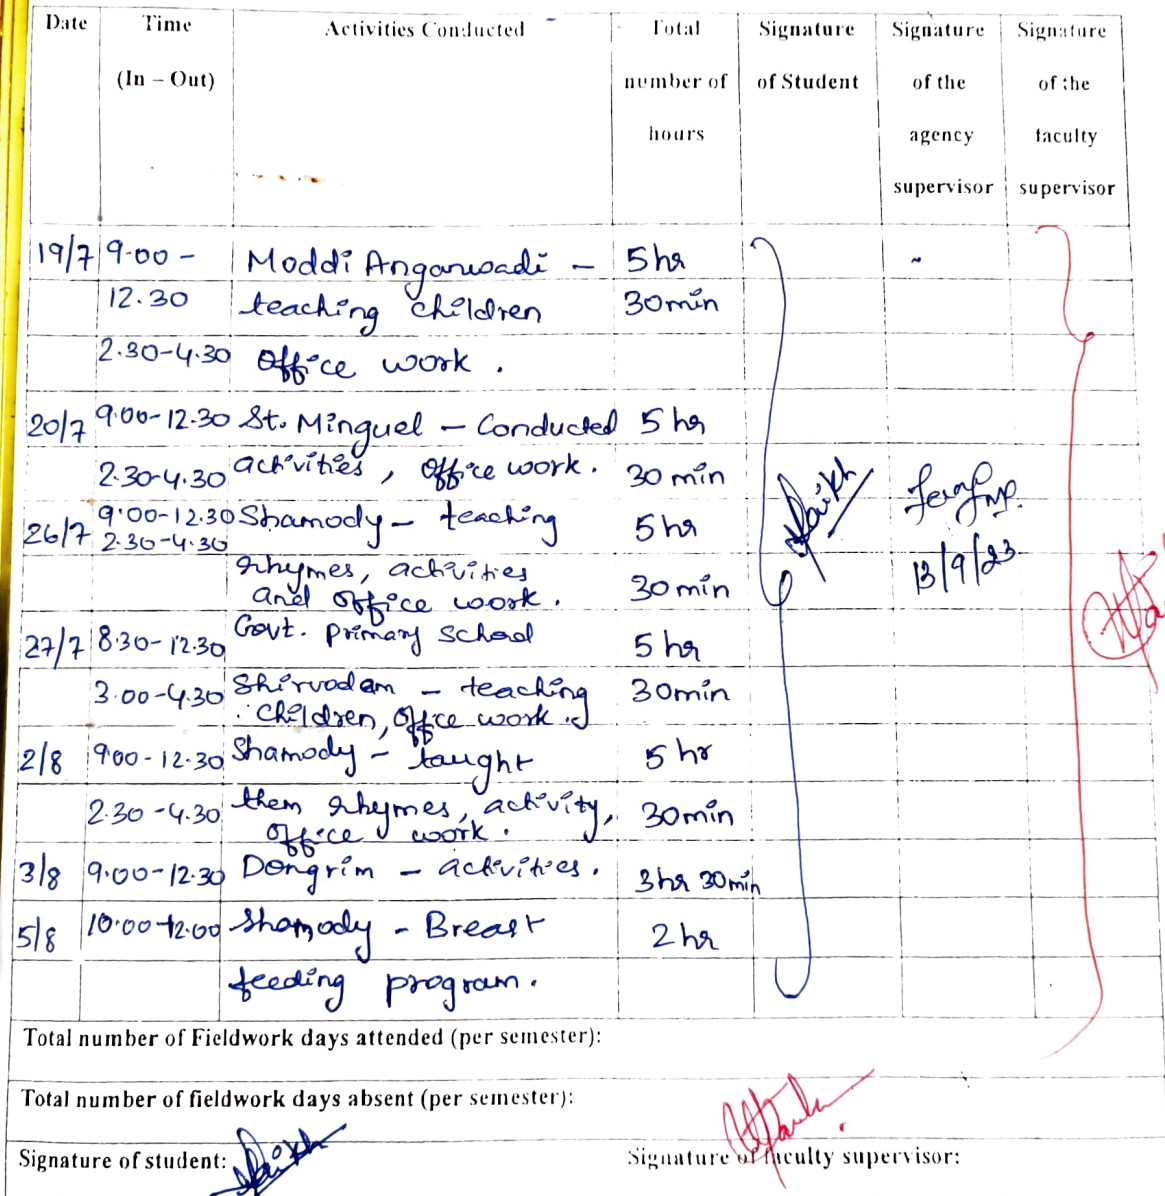 Date Time Activities Conducted Total Signature Signature Signature
(In – Out) number of of Student of the of the
hours agency faculty
supervisor supervisor
19/7 9.00 - Moddi Anganwadi - 5 hr
12.30 teaching children 30 min
2.30-4.30 office work.
20/7 9.00-12.30 St. Minguel - Conducted 5 hr
2.30-4.30 activities, office work. 30 min
26/7 9.00-12.30 Shamody - teaching 5 hr
2.30-4.30
rhymes, activities 30 min
and office work.
13/9/23
27/7 8.30-12.30 Govt. primary School 5 hr
3.00-4.30 Shirvodam - teaching 30 min
children, office work.
2/8 9.00-12.30 Shamody - taught 5 hr
2.30-4.30 them rhymes, activity, 30 min
office work.
3/8 9.00-12.30 Dongrim - activities. 3 hr 30 min
5/8 10.00-12.00 Shamody - Breast 2 hr
feeding program.
Total number of Fieldwork days attended (per semester):
Total number of fieldwork days absent (per semester):
Signature of student: Signature of faculty supervisor: